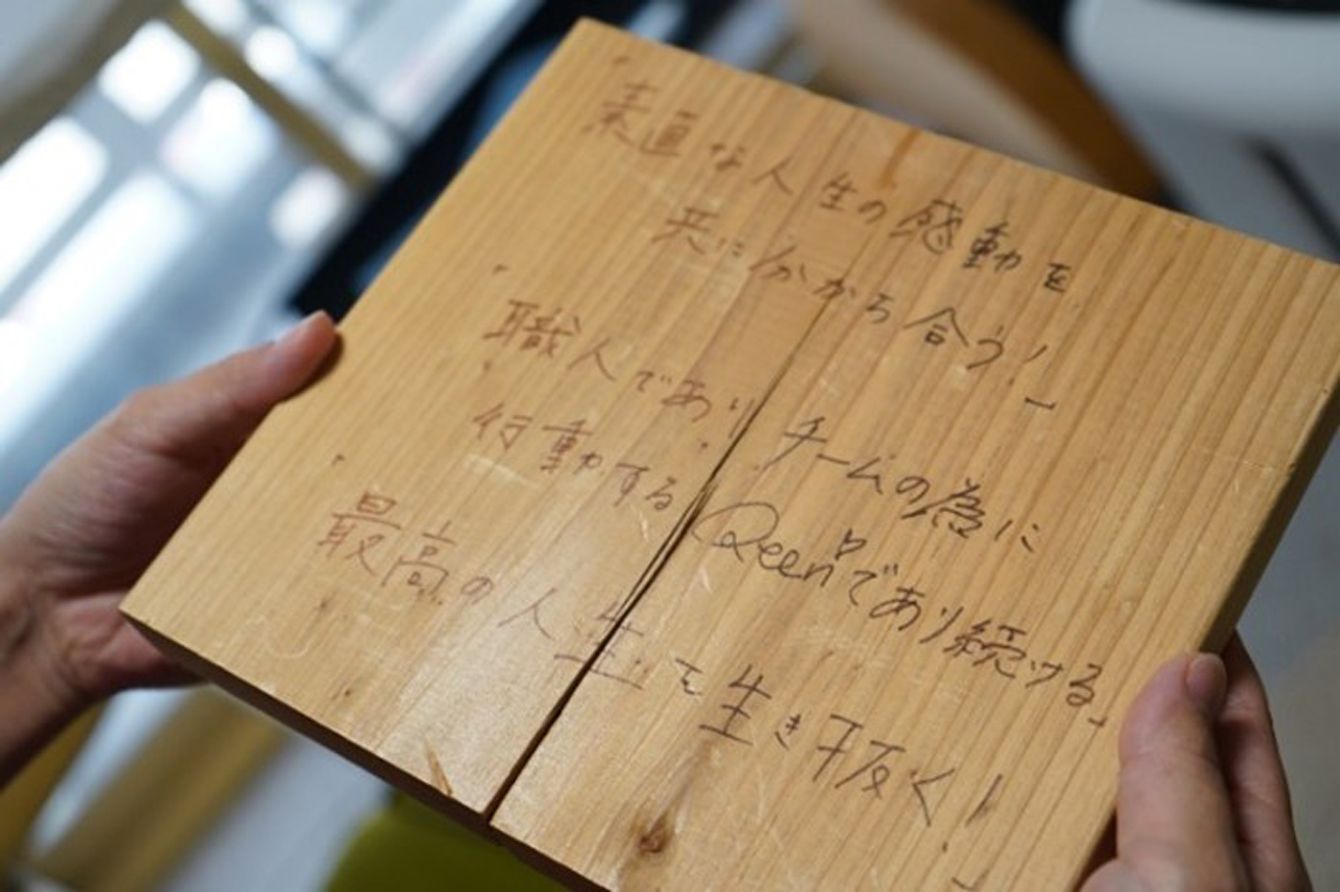 「素直な人生の感動を
共に分かち合う!」
「職人であり、チームの為に
行動するQeenであり続ける」
「最高の人生を生き抜く!」